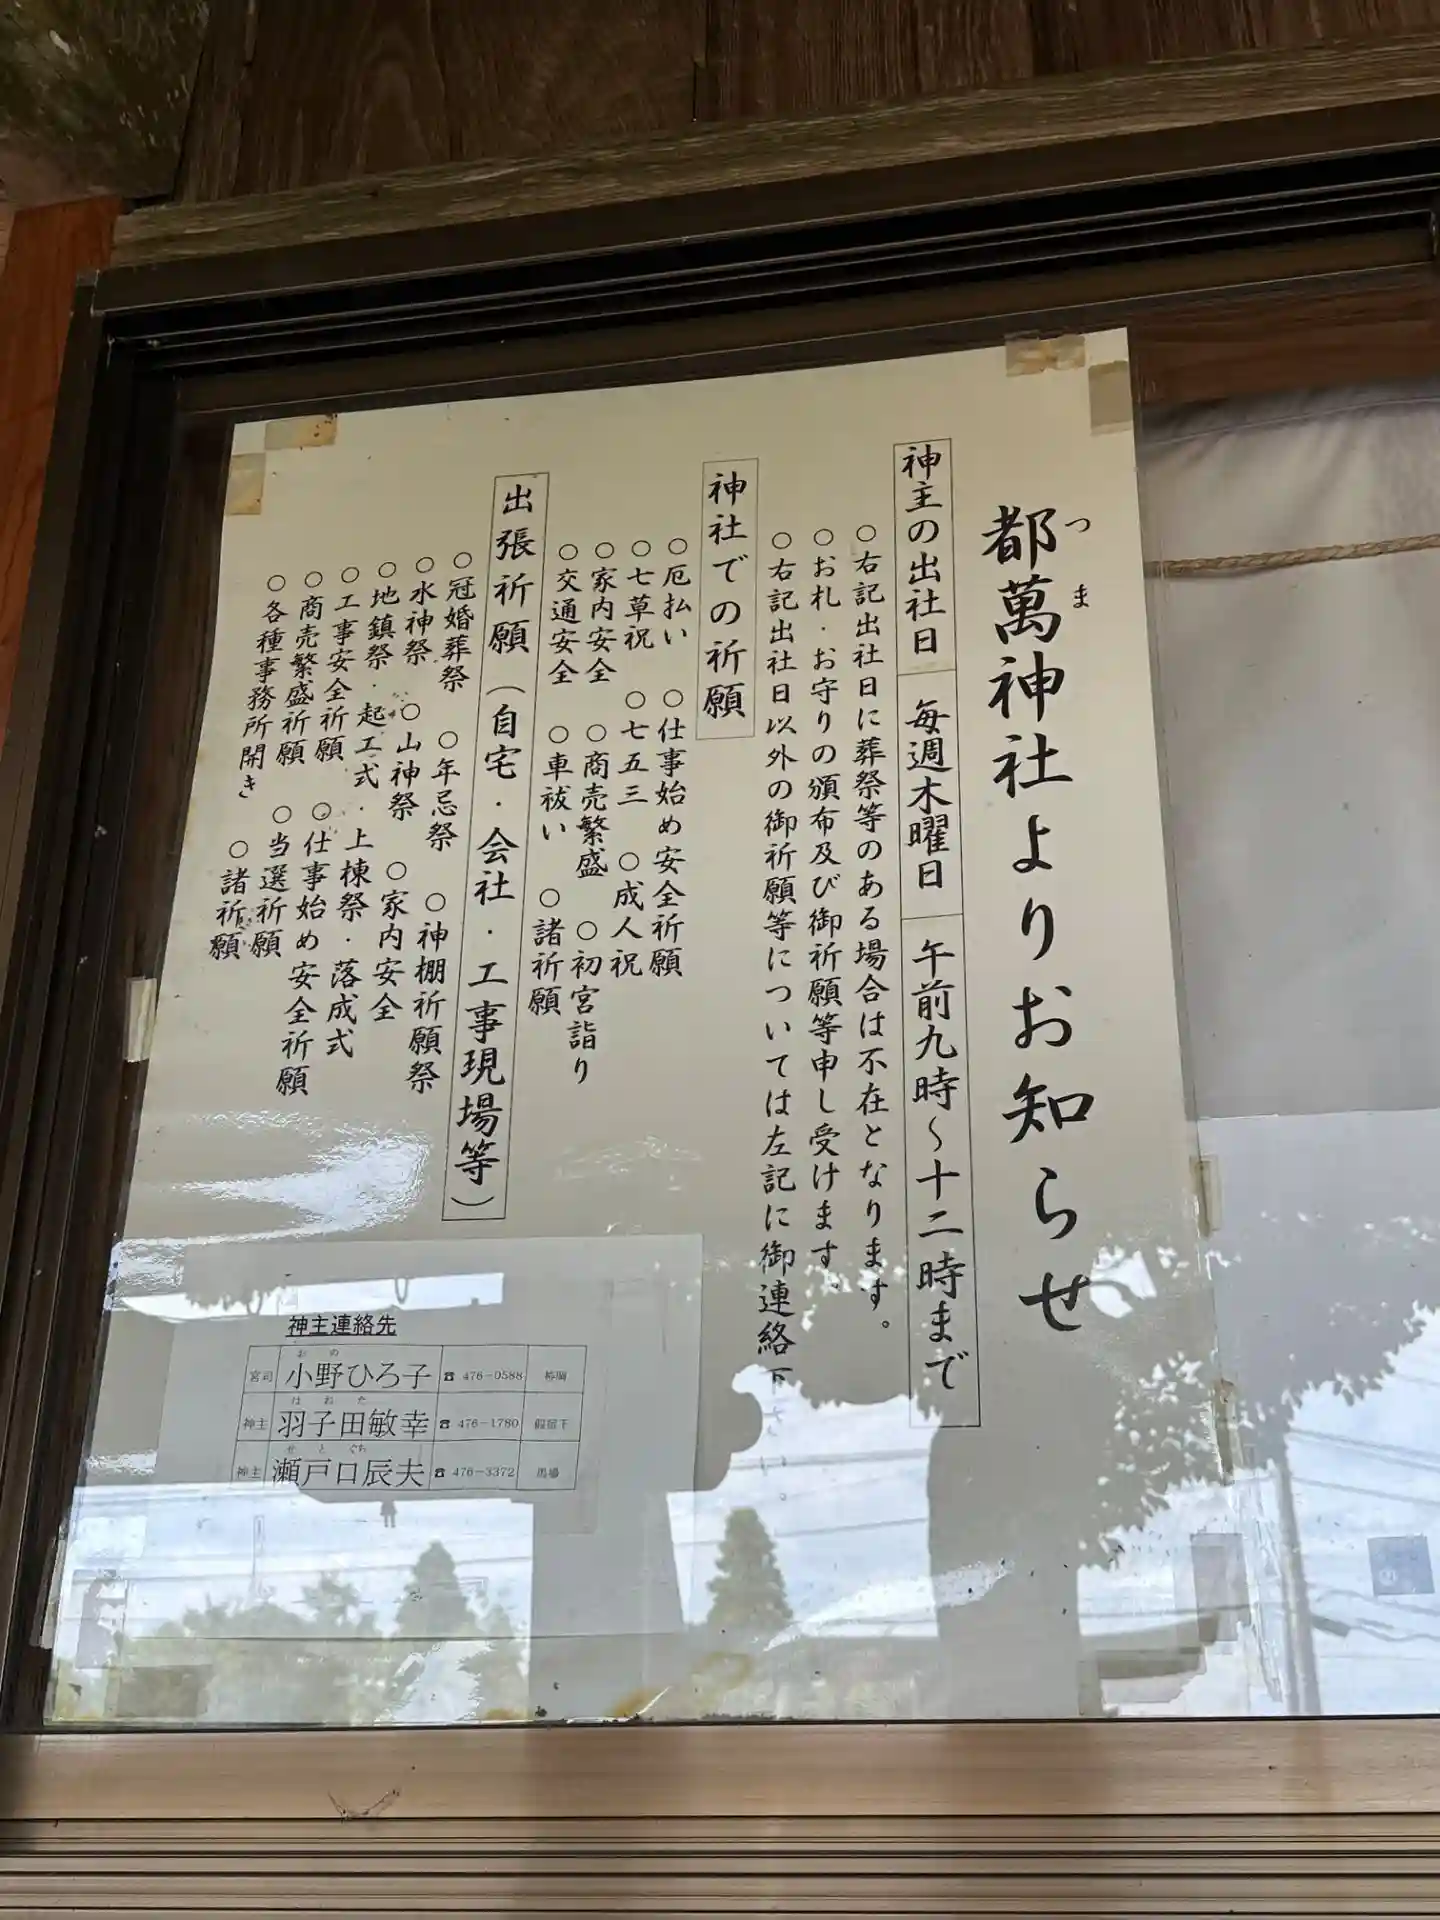 都萬神社よりお知らせ
つま
神主の出社日 毎週木曜日 午前九時～十二時まで
○右記出社日に葬祭等のある場合は不在となります。
○お札・お守りの頒布及び御祈願等申し受けます。
○右記出社日以外の御祈願等については左記に御連絡下さい。
神社での祈願
○厄払い ○仕事始め安全祈願
○七草祝 ○七五三 ○成人祝
○家内安全 ○商売繁盛 ○初宮詣り
○交通安全 ○車祓い ○諸祈願
出張祈願（自宅・会社・工事現場等）
○冠婚葬祭 ○年忌祭 ○神棚祈願祭
○水神祭 ○山神祭 ○家内安全
○地鎮祭・起工式・上棟祭・落成式
○工事安全祈願 ○仕事始め安全祈願
○商売繁盛祈願 ○当選祈願
○各種事務所開き ○諸祈願
神主連絡先
おの
宮司 小野ひろ子 ☎ 476-0588
はねた
神主 羽子田敏幸 ☎ 476-1780 假宿下
せとぐち
神主 瀬戸口辰夫 ☎ 476-3372 馬場